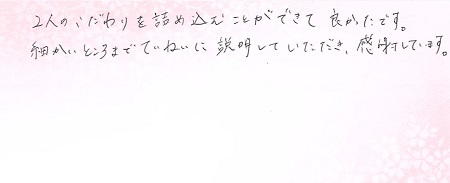 2人のこだわりを詰め込むことができて良かったです。
細かいところまでていねいに説明していただき、感謝しています。